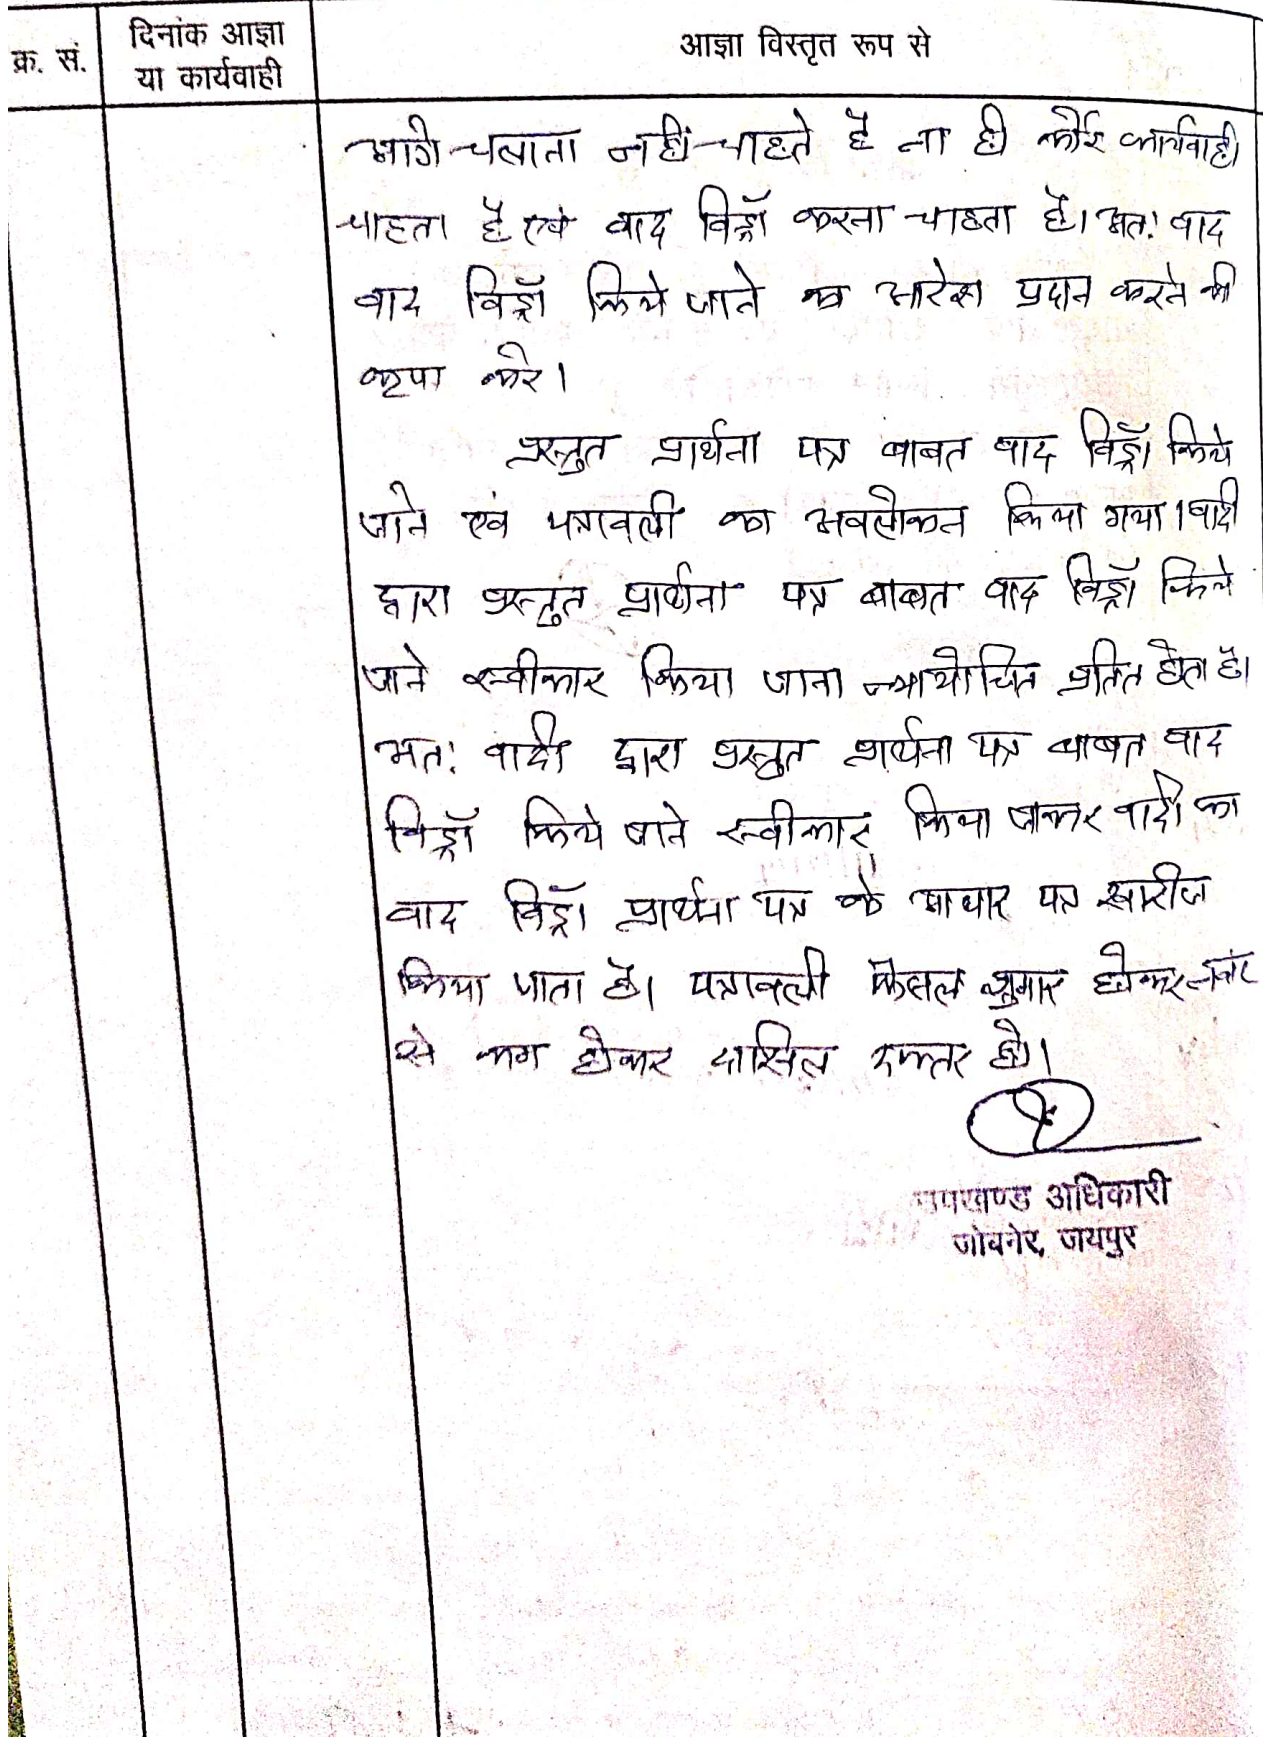 क्र. सं.
दिनांक आज्ञा
या कार्यवाही
आज्ञा विस्तृत रूप से
आगे चलाना नहीं चाहते है ना ही कोई कार्यवाही
चाहता है एवं वाद विड्रॉ करना चाहता है। अतः वाद
वाद विड्रॉ किये जाने का आदेश प्रदान करने की
कृपा करे।
प्रस्तुत प्रार्थना पत्र बाबत वाद विड्रॉ किये
जाने एवं पत्रावली का अवलोकन किया गया। वादी
द्वारा प्रस्तुत प्रार्थना पत्र बाबत वाद विड्रॉ किये
जाने स्वीकार किया जाना न्यायोचित प्रतित होता है।
अतः वादी द्वारा प्रस्तुत प्रार्थना पत्र बाबत वाद
विड्रॉ किये जाने स्वीकार किया जाकर वादी का
वाद विड्रॉ प्रार्थना पत्र के आधार पत्र खारीज
किया जाता है। पत्रावली फैसल शुमार होकर नंबर
से कम होकर दाखिल दफ्तर हो।
उपखण्ड अधिकारी
जोबनेर, जयपुर